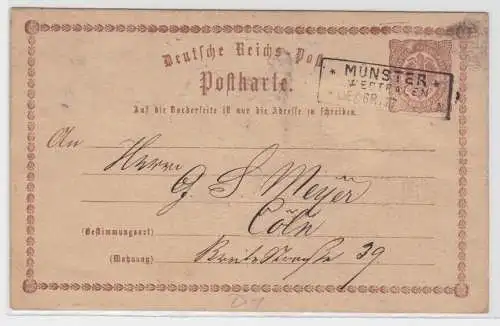 Deutsche Reichs-Post
Postkarte.
* MÜNSTER *
WESTFALEN
Auf die Vorderseite ist nur die Adresse zu schreiben.
An
Herrn
G. S. Meyer
Cöln
(Bestimmungsort)
Breite Strasse 29.
(Wohnung)